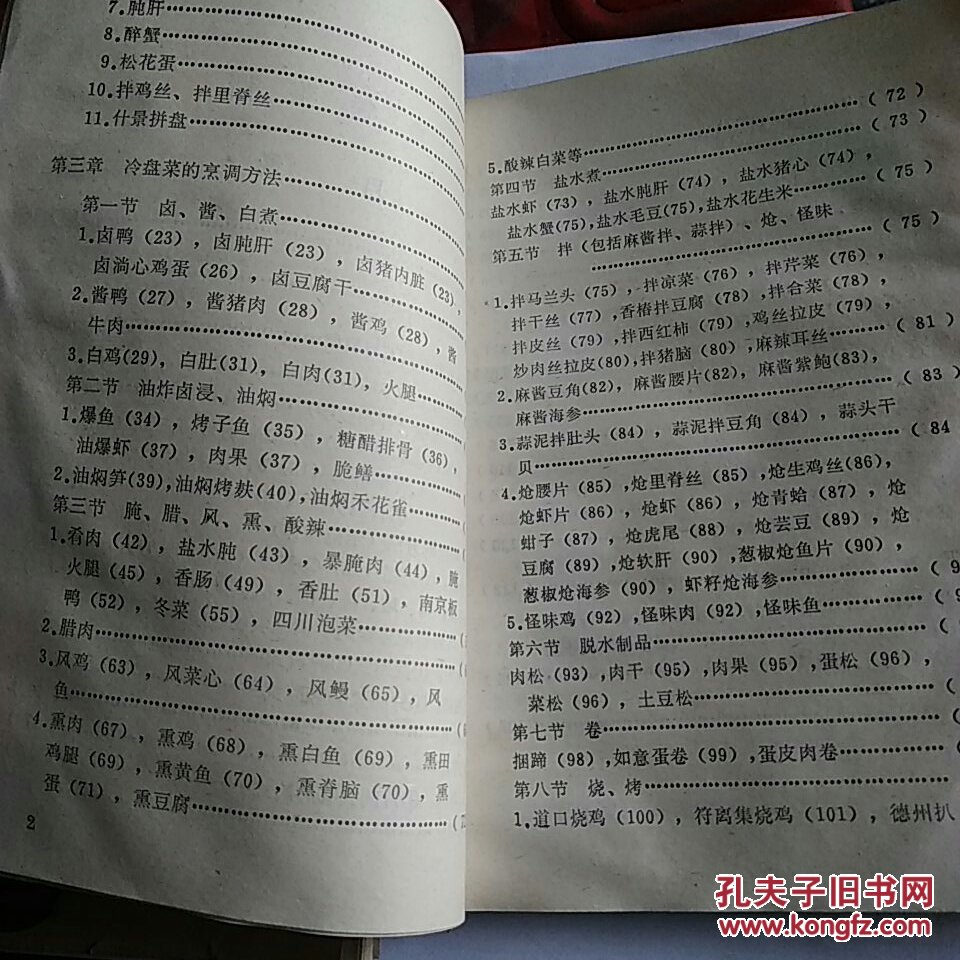 7.肫肝
8.醉蟹
9.松花蛋
10.拌鸡丝、拌里脊丝
11.什景拼盘
第三章 冷盘菜的烹调方法
第一节 卤、酱、白煮
1.卤鸭(23),卤肫肝(23),卤猪内脏(23),
卤淌心鸡蛋(26),卤豆腐干
2.酱鸭(27),酱猪肉(28),酱鸡(28),酱
牛肉
3.白鸡(29),白肚(31),白肉(31),火腿
第二节 油炸卤浸、油焖
1.爆鱼(34),烤子鱼(35),糖醋排骨(36),
油爆虾(37),肉果(37),脆鳝
2.油焖笋(39),油焖烤麸(40),油焖禾花雀
第三节 腌、腊、风、熏、酸辣
1.肴肉(42),盐水肫(43),暴腌肉(44),腌
火腿(45),香肠(49),香肚(51),南京板
鸭(52),冬菜(55),四川泡菜
2.腊肉
3.风鸡(63),风菜心(64),风鳗(65),风
鱼
4.熏肉(67),熏鸡(68),熏白鱼(69),熏田
鸡腿(69),熏黄鱼(70),熏脊脑(70),熏
蛋(71),熏豆腐
2
(72)
5.酸辣白菜等(73)
第四节 盐水煮
盐水虾(73),盐水肫肝(74),盐水猪心(74),
盐水蟹(75),盐水毛豆(75),盐水花生米(75)
第五节 拌(包括麻酱拌、蒜拌)、炝、怪味
(75)
1.拌马兰头(75),拌凉菜(76),拌芹菜(76),
拌干丝(77),香椿拌豆腐(78),拌合菜(78),
拌皮丝(79),拌西红柿(79),鸡丝拉皮(79),
炒肉丝拉皮(80),拌猪脑(80),麻辣耳丝(81)
2.麻酱豆角(82),麻酱腰片(82),麻酱紫鲍(83),
麻酱海参(83)
3.蒜泥拌肚头(84),蒜泥拌豆角(84),蒜头干
贝(84
4.炝腰片(85),炝里脊丝(85),炝生鸡丝(86),
炝虾片(86),炝虾(86),炝青蛤(87),炝
蚶子(87),炝虎尾(88),炝芸豆(89),炝
豆腐(89),炝软肝(90),葱椒炝鱼片(90),
葱椒炝海参(90),虾籽炝海参
5.怪味鸡(92),怪味肉(92),怪味鱼
第六节 脱水制品
肉松(93),肉干(95),肉果(95),蛋松(96),
菜松(96),土豆松
第七节 卷
捆蹄(98),如意蛋卷(99),蛋皮肉卷
第八节 烧、烤
1.道口烧鸡(100),符离集烧鸡(101),德州扒
孔夫子旧书网
www.kongfz.com